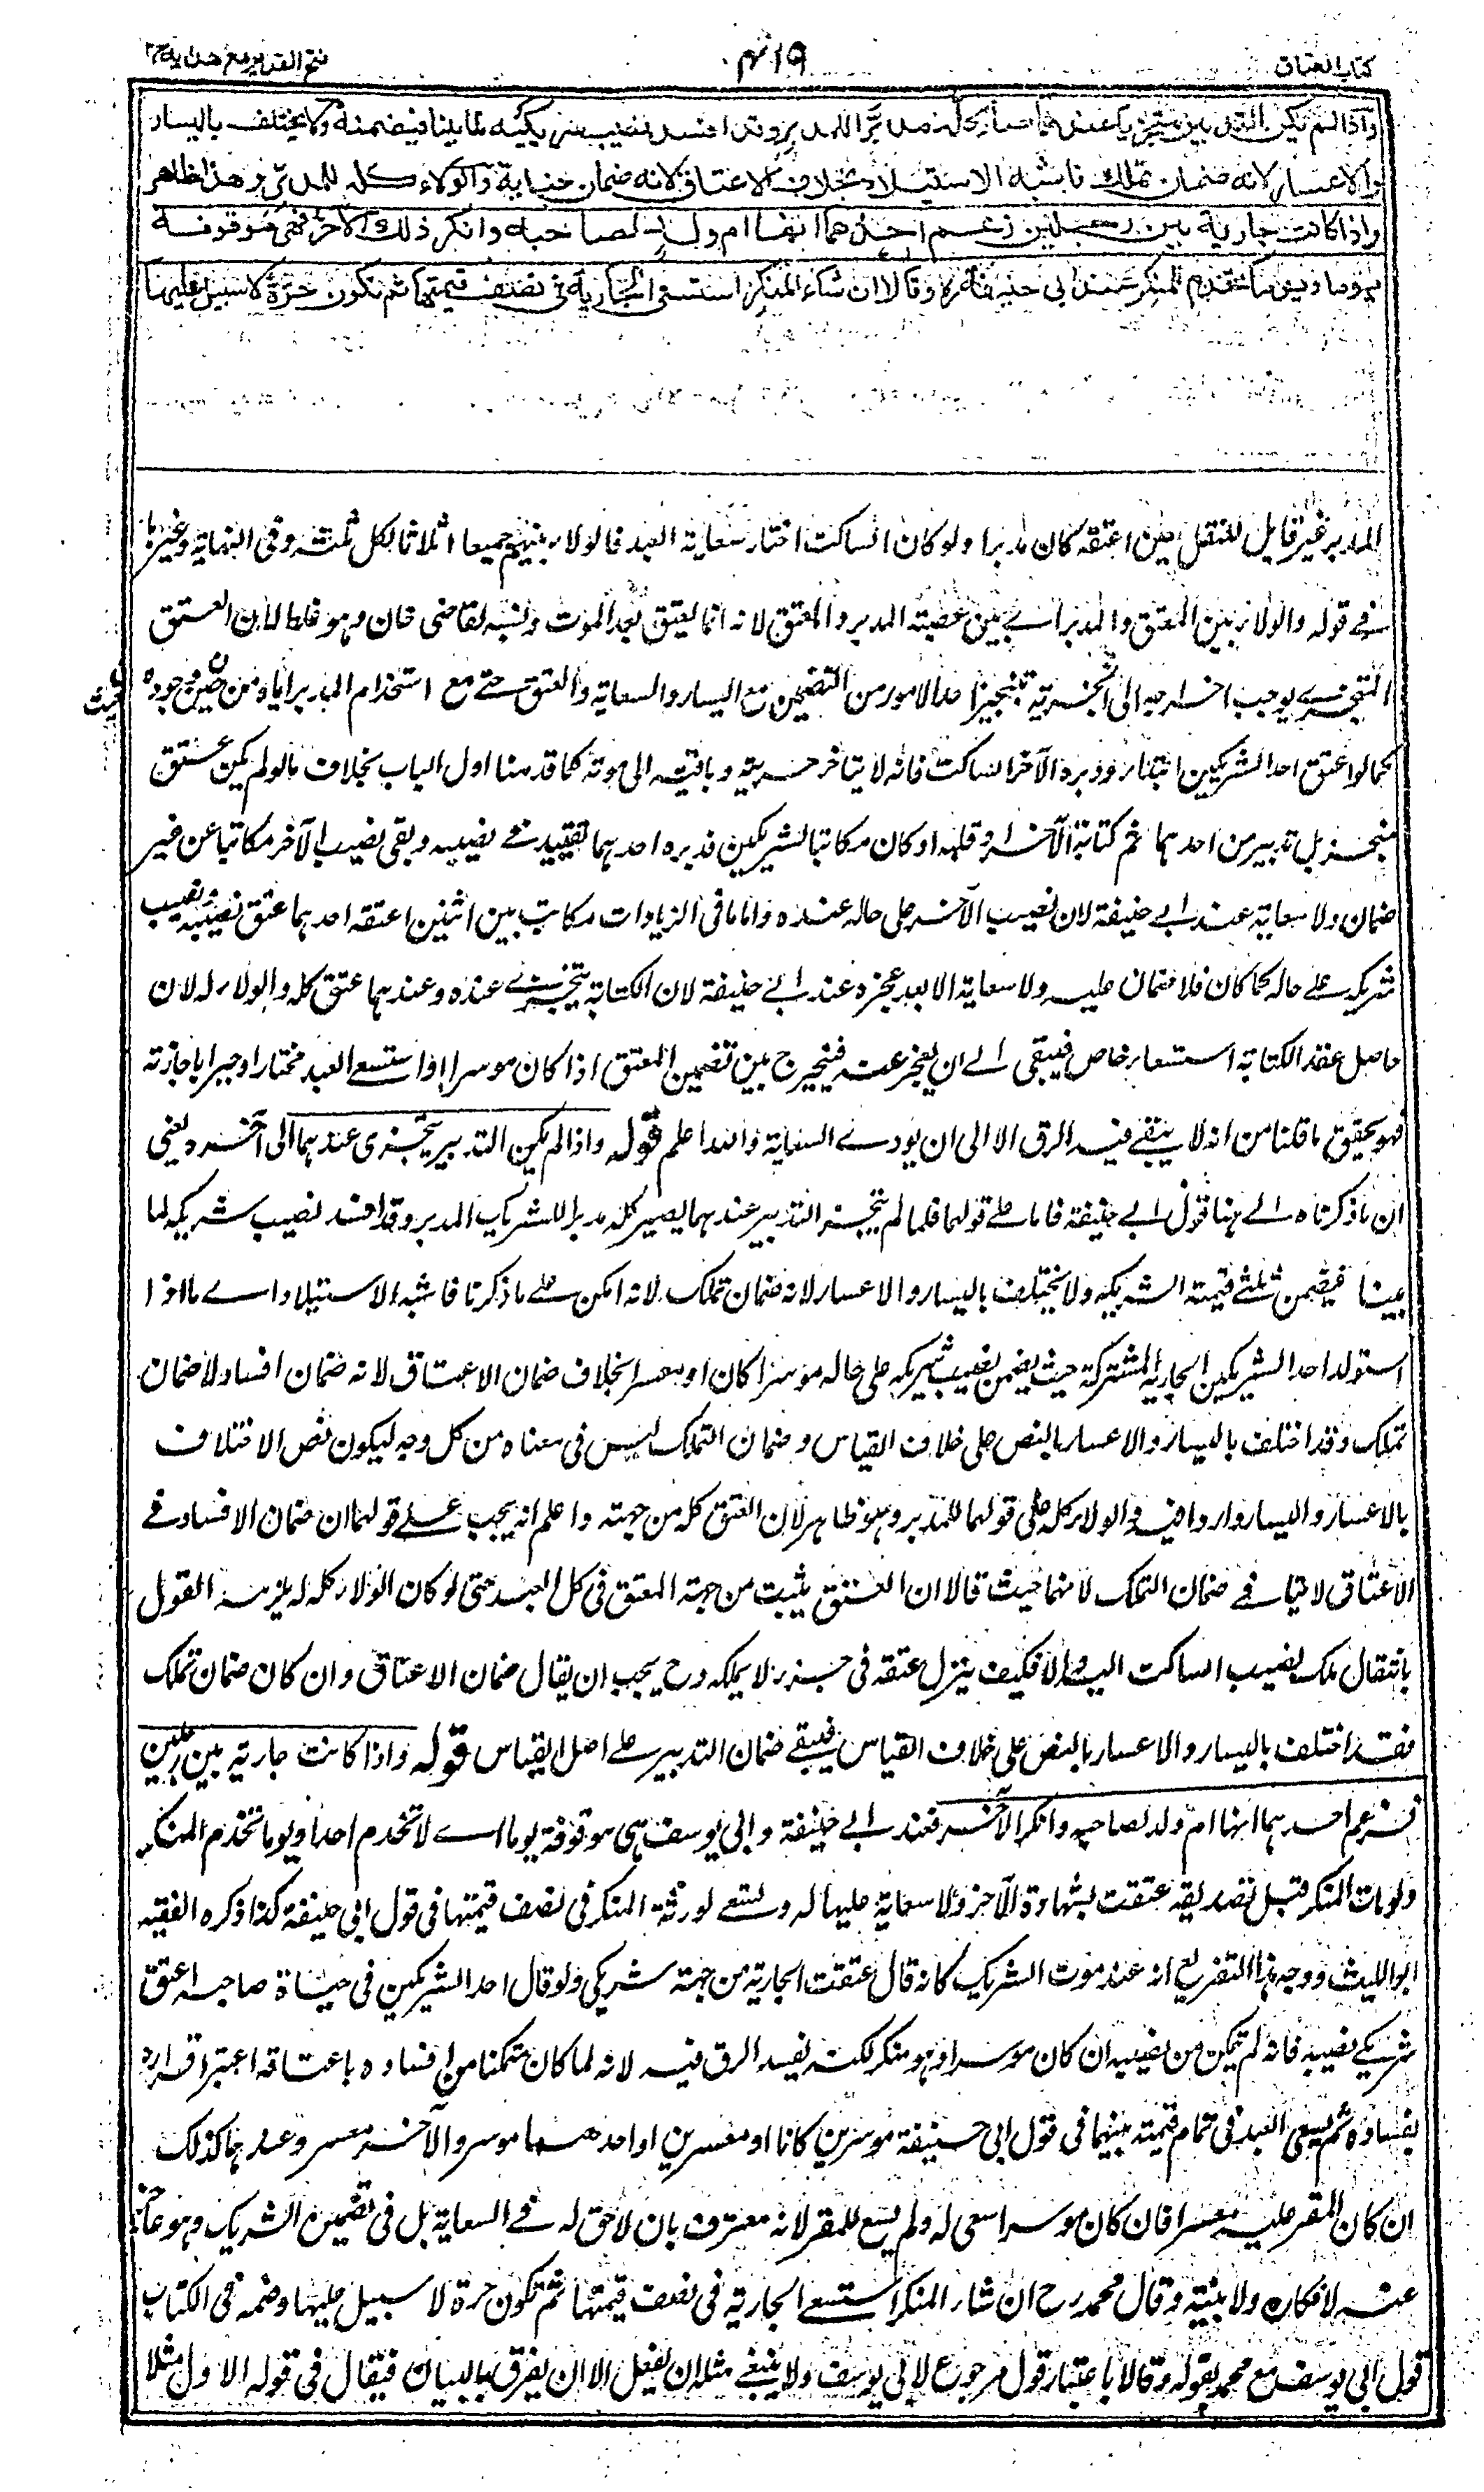 كتاب العتاق
٤١٩
فتح القدير مع هدايه ج٢
واذا لم يكن التدبير متجزيا عندهما صار كله مدبرا للمدبر وقد افسد نصيب شريكه لما بينا فيضمنه ولا يختلف باليسار
والاعسار لانه ضمان تملك فاشبه الاستيلاد بخلاف الاعتاق لانه ضمان جناية والولاء كله للمدبر وهذا ظاهر
واذا كانت جارية بين رجلين زعم احدهما انها ام ولد لصاحبه وانكر ذلك الآخر فهي موقوفة
يوما ويوما تخدم المنكر عند ابى حنيفة رح وقالا ان شاء المنكر استسعى الجارية فى نصف قيمتها ثم تكون حرة لا سبيل عليها
المدبر غير قابل للنقل حين اعتقه كان مدبرا ولو كان الساكت اختار سعاية العبد فالولاء بينهم جميعا اثلاثا لكل ثلثه وفى النهاية وغيرها
فے قوله والولاء بين المعتق والمدبر اے بين عصبة المدبر والمعتق لانه انما يعتق بعد الموت ونسبه لقاضى خان وهو غلط لان العتق
المتجزے يوجب اخراجه الى الحرية بتنجيز احد الامور من التضمين مع اليسار والسعاية والعتق حتے مع استخدام المدبر اياه من حين وجوده
كما لو اعتق احد الشريكين ابتداء ودبره الآخر الساكت فانه لا يتاخر حريته وباقيه الى موته كما قدمنا اول الباب بخلاف ما لو لم يكن عتق
منجز بل تدبير من احدهما ثم كتابة الآخر او قلبه او كان مكاتبا لشريكين فدبره احدهما تقييد فے نصيبه وبقى نصيب الآخر مكاتبا من غير
ضمان ولا سعاية عند ابے حنيفة لان نصيب الآخر على حاله عنده واما ما فى الزيادات مكاتب بين اثنين اعتقه احدهما عتق نصيبه ونصيب
شريكه علے حاله كما كان فلا ضمان عليه ولا سعاية الا بعد عجزه عند ابے حنيفة لان الكتابة يتجزے عنده وعندهما عتق كله والولاء له لان
حاصل عقد الكتابة استسعاء خاص فيبقى الے ان يعجز عنه فيتخير ح بين تضمين المعتق اذا كان موسرا او استسعے العبد مختارا وجبرا باجازته
فهو تحقيق ما قلنا من انه لا يبقے فيه الرق الا الى ان يودے السعاية والله اعلم قوله واذا لم يكن التدبير يتجزى عندهما الى آخره يعنى
ان ما ذكرناه الے هنا قول ابے حنيفة فاما علے قولهما فلما لم يتجز التدبير عندهما يصير كله مدبرا للشريك المدبر وقد افسد نصيب شريكه لما
بينا فيضمن ثلثے قيمته لشريكه ولا يختلف باليسار والاعسار لانه ضمان تملك لانه امكن علے ما ذكرنا فاشبه الاستيلاد اے ما اذا
استولد احد الشريكين الجارية المشتركة حيث يضمن نصيب شريكه على حاله موسرا كان او معسرا بخلاف ضمان الاعتاق لانه ضمان افساد لا ضمان
تملك وقد اختلف باليسار والاعسار بالنص على خلاف القياس وضمان التملك ليس فى معناه من كل وجه ليكون نص الاختلاف
بالاعسار واليسار واردا فيه والولاء كله على قولهما للمدبر وهو ظاهر لان العتق كله من جهته واعلم انه يجب علے قولهما ان ضمان الافساد فے
الاعتاق لا ينافے ضمان التملك لانهما حيث قالا ان العتق يثبت من جهة المعتق فى كل العبد حتى لو كان الولاء كله له يلزمه القول
بانتقال ملك نصيب الساكت اليه والا فكيف ينزل عتقه فى جزء لا يملكه وح يجب ان يقال ضمان الاعتاق وان كان ضمان تملك
فقد اختلف باليسار والاعسار بالنص على خلاف القياس فيبقے ضمان التدبير علے اصل القياس قوله واذا كانت جارية بين رجلين
فزعم احدهما انها ام ولد لصاحبه وانكر الآخر فعند ابے حنيفة وابى يوسف هى موقوفة يوما اے لا تخدم احدا ويوما تخدم المنكر
ولو مات المنكر قبل تصديقه عتقت بشهادة الآخر ولا سعاية عليها له وتسعے لورثة المنكر فى نصف قيمتها فى قول ابى حنيفة كذا ذكره الفقيه
ابو الليث ووجه هذا التفريع انه عند موت الشريك كانه قال عتقت الجارية من جهة شريكى ولو قال احد الشريكين فى حياة صاحبه اعتق
شريكے نصيبه فانه لم يتمكن من نصيبه ان كان موسرا وهو منكر لكنه يفسد الرق فيه لانه لما كان متمكنا من افساده باعتاقه اعتبر اقراره
بفساده ثم يسعى العبد فى تمام قيمته بينهما فى قول ابى حنيفة موسرين كانا او معسرين او احدهما موسر والآخر معسر وعندهما كذلك
ان كان المقر عليه معسرا فان كان موسرا سعى له ولم يسع للمقر لانه معترف بان لا حق له فے السعاية بل فى تضمين الشريك وهو عاجز
عنه لانكاره ولا بينة وقال محمد رح ان شاء المنكر استسعے الجارية فى نصف قيمتها ثم تكون حرة لا سبيل عليها وضمه فى الكتاب
قول ابى يوسف مع محمد بقوله وقالا باعتبار قول مرجوع لابى يوسف ولا ينبغے مثله ان يفعل الا ان يفرق بالبيان فيقال فى قوله الاول مثلا